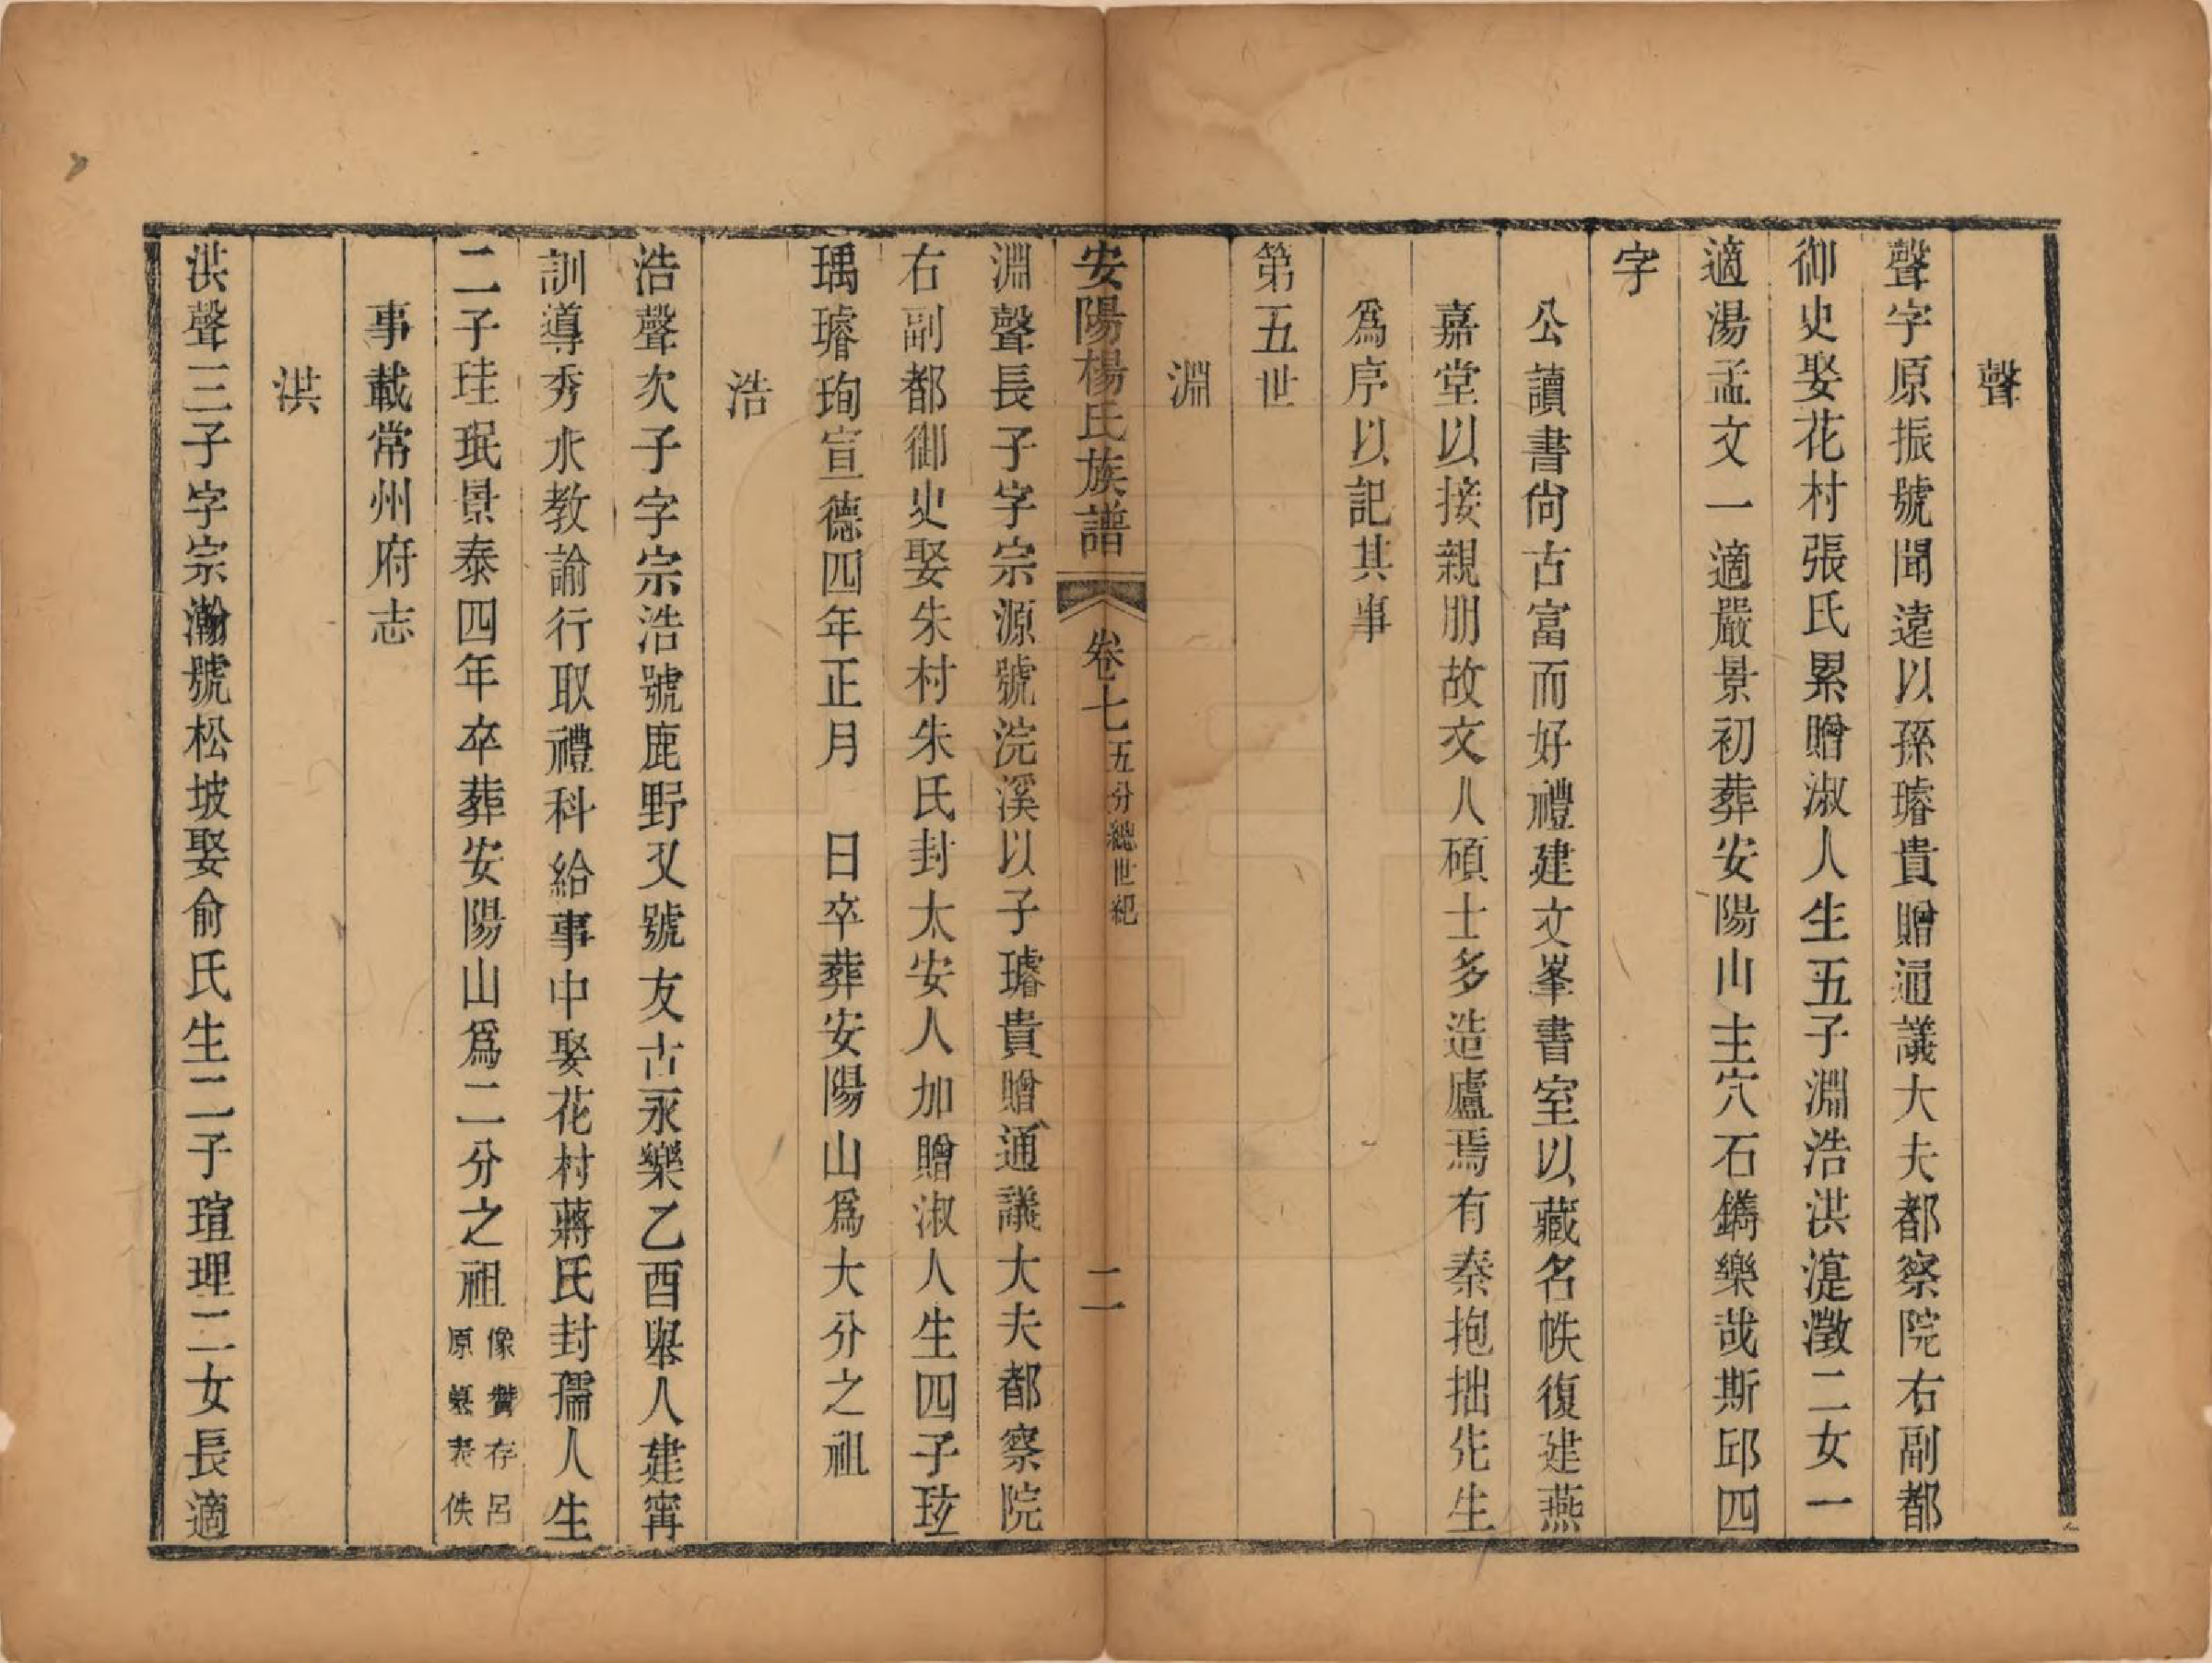 聲
聲字原振號聞遠以孫璿貴贈通議大夫都察院右副都
御史娶花村張氏累贈淑人生五子淵浩洪湜澂二女一
適湯孟文一適嚴景初葬安陽山主穴石鐫樂哉斯邱四
字
公讀書尙古富而好禮建文峯書室以藏名帙復建燕
嘉堂以接親朋故文人碩士多造廬焉有秦抱拙先生
爲序以記其事
第五世
淵
安陽楊氏族譜 卷七 五分總世紀 二
淵聲長子字宗源號浣溪以子璿貴贈通議大夫都察院
右副都御史娶朱村朱氏封太安人加贈淑人生四子玹
瑀璿珣宣德四年正月 日卒葬安陽山爲大分之祖
浩
浩聲次子字宗浩號鹿野又號友古永樂乙酉舉人建寗
訓導秀水教諭行取禮科給事中娶花村蔣氏封孺人生
二子珪珉景泰四年卒葬安陽山爲二分之祖 像贊存呂
原墓表佚
事載常州府志
洪
洪聲三子字宗瀚號松坡娶俞氏生二子瑄理二女長適